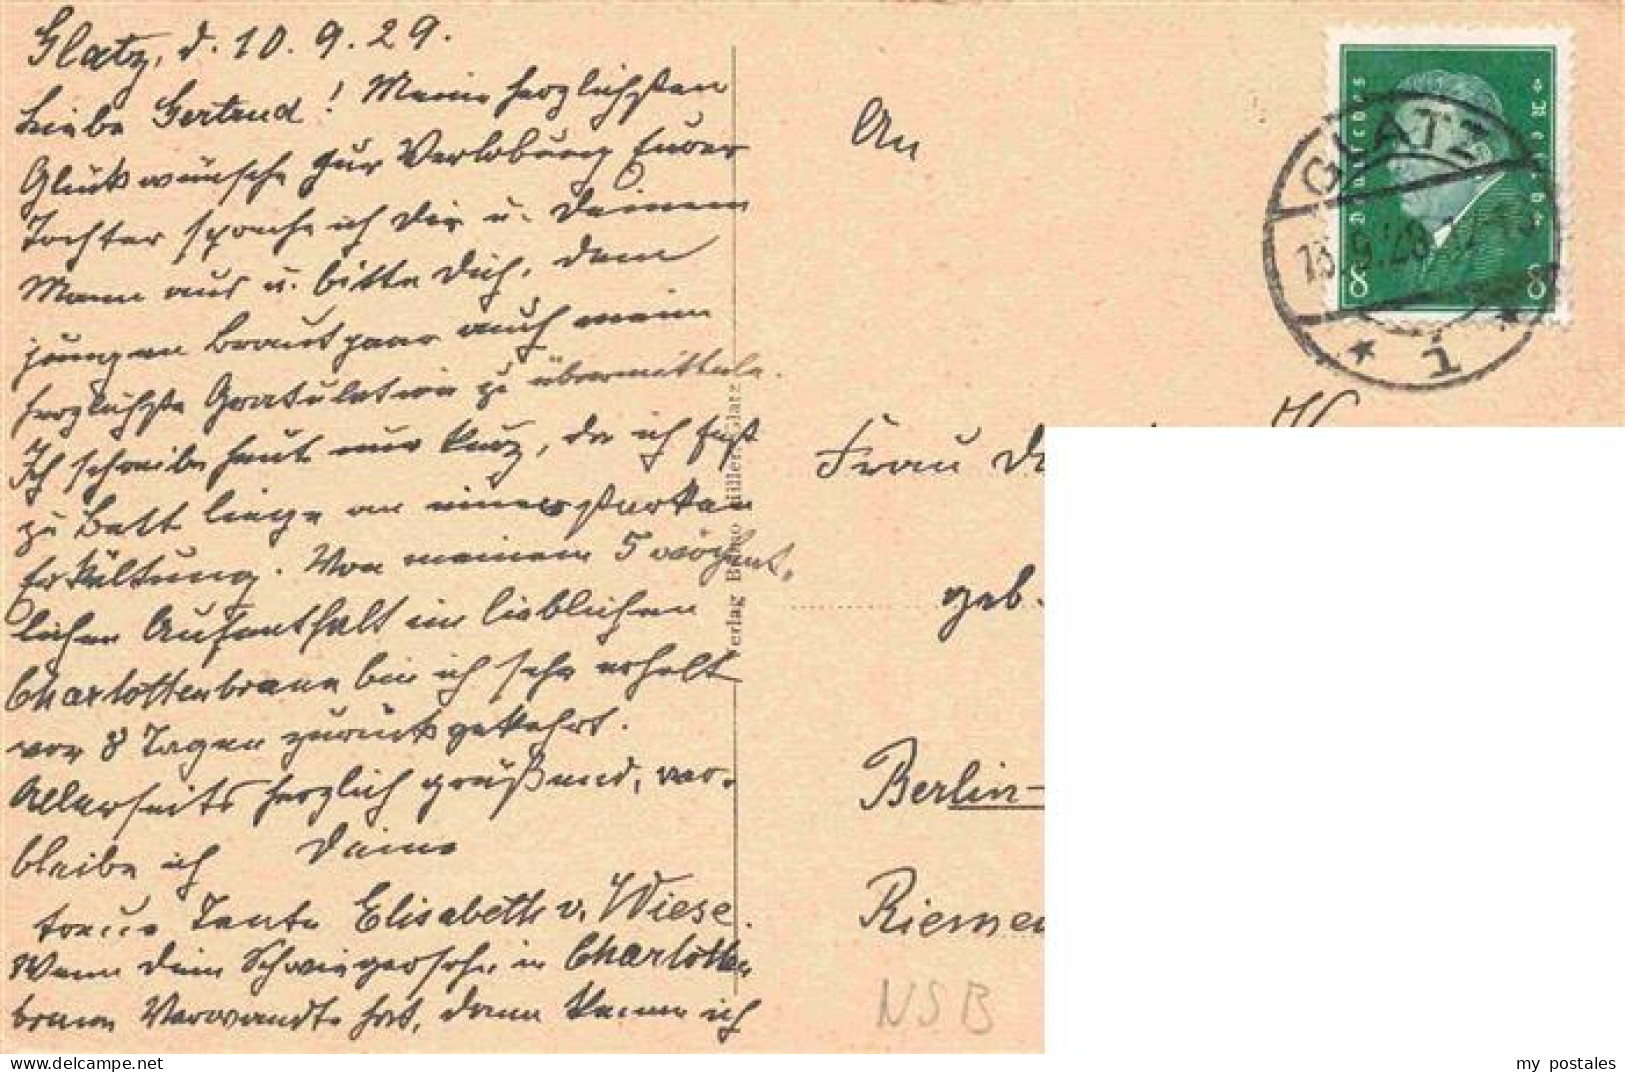 Glatz, d. 10.9.29.
Liebe Gertrud! Meine herzlichsten
Glückwünsche zur Verlobung Eurer
Tochter spreche ich Dir u. Deinem
Mann aus u. bitte Dich, dem
jungen Brautpaar auch meine
herzlichste Gratulation zu übermitteln.
Ich schreibe heut nur kurz, da ich fest
zu Bett liege an einer starken
Erkältung. Von meinem 5 wöchent-
lichen Aufenthalt im lieblichen
Charlottenbrunn bin ich sehr erholt
vor 8 Tagen zurückgekehrt.
Allerseits herzlich grüßend, ver-
bleibe ich Deine
treue Tante Elisabeth v. Wiese.
Wenn dein Schwiegersohn in Charlotten
brunn Verwandte hat, dann kenne ich
Verlag Bruno Hiller, Glatz
An
Frau
geb.
Berlin-
Rieme
NSB
Deutsches Reich
8 8
GLATZ
1
my postales